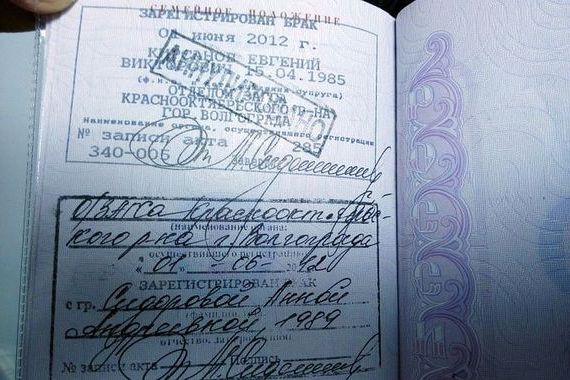 СЕМЕЙНОЕ ПОЛОЖЕНИЕ
ЗАРЕГИСТРИРОВАН БРАК
01 июня 2012 г.
ЕВГЕНИЙ
15.04.1985
ОТДЕЛОМ
КРАСНООКТЯБРЬСКОГО Р-НА
ГОР. ВОЛГОГРАДА
Наименование органа, осуществившего регистрацию
№ записи акта 285
340-006
О/ЗАГСа Краснооктябрь-
ского р-на г. Волгограда
(наименование органа)
осуществившего регистрацию
" 01 " - 06 - 2012
ЗАРЕГИСТРИРОВАН БРАК
с гр. Сидоровой Анной
Андреевной, 1989
отчество, дата
№ записи акта Подпись